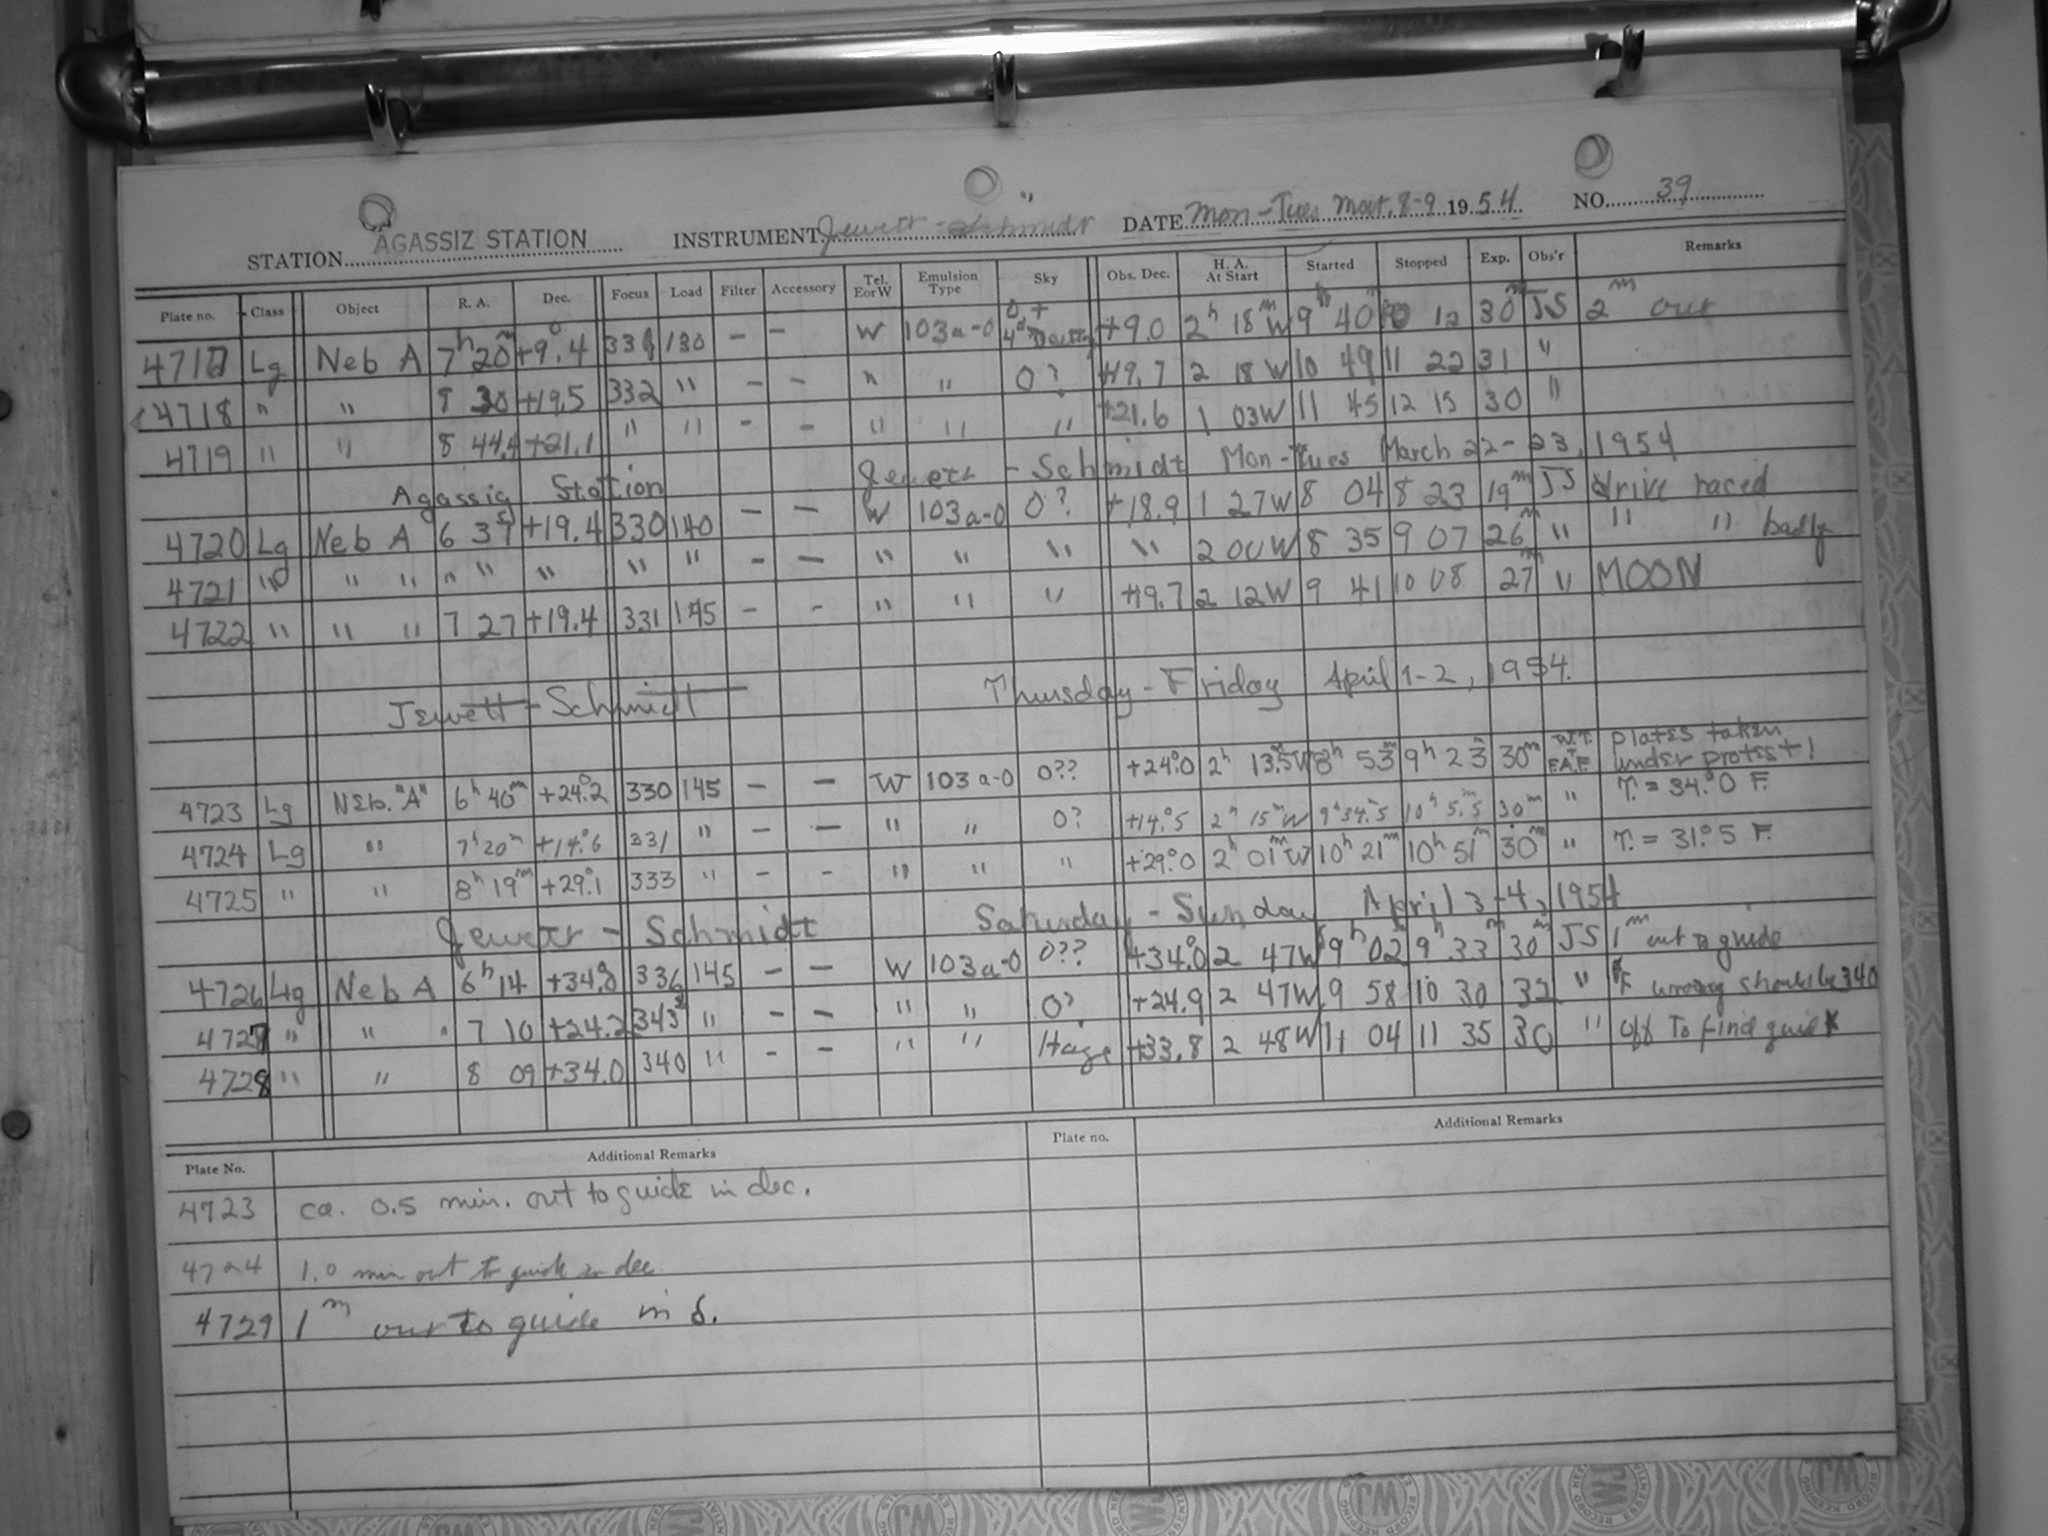 STATION AGASSIZ STATION INSTRUMENT Jewett - Schmidt DATE Mon - Tues Mar. 8-9 1954 NO. 39
Plate no. Class Object R. A. Dec. Focus Load Filter Accessory Tel. E or W Emulsion Type Sky Obs. Dec. H. A. At Start Started Stopped Exp. Obs'r Remarks
4717 Lg Neb A 7h 20m +9°.4 331 130 - - W 103a-O +9.0 2h 18m W 9h 40m 10 12 30m JS 2m out
4718 " " 8 30 +19.5 332 " - - " " O? +19.7 2 18 W 10 49 11 22 31 "
4719 " " 8 44.4 +21.1 " " - - " " " +21.6 1 03W 11 45 12 15 30 "
Agassiz Station Jewett - Schmidt Mon - Tues March 22-23, 1954
4720 Lg Neb A 6 35 +19.4 330 140 - - W 103a-O O? +18.9 1 27W 8 04 8 23 19m JS drive raced
4721 " " " " " " " " - - " " " " 2 00W 8 35 9 07 26m " " " badly
4722 " " " 7 27 +19.4 331 145 - - " " " +19.7 2 12W 9 41 10 08 27m " MOON
Jewett - Schmidt Thursday - Friday April 1-2, 1954.
4723 Lg Neb. "A" 6h 40m +24°.2 330 145 - - W 103a-O O?? +24°.0 2h 13.5m W 8h 53m 9h 23m 30m W.T. + F.A.F. plates taken under protest!
4724 Lg " 7h 20m +14°.6 331 " - - " " O? +14°.5 2h 15m W 9h 34m.5 10h 5m.5 30m " T. = 34.°0 F.
4725 " " 8h 19m +29°.1 333 " - - " " " +29°.0 2h 01m W 10h 21m 10h 51m 30m " T. = 31.°5 F.
Jewett - Schmidt Saturday - Sunday April 3-4, 1954
4726 Lg Neb A 6h 14 +34.0 336 145 - - W 103a-O O?? +34.0 2 47W 9h 02m 9h 33m 30m JS 1m out to guide
4727 " " " 7 10 +24.2 343 " - - " " O? +24.9 2 47W 9 58 10 30 32 " F wrong should be 340
4728 " " 8 09 +34.0 340 " - - " " Haze +33.8 2 48W 11 04 11 35 30 " off to find guide *
Plate No. Additional Remarks Plate no. Additional Remarks
4723 ca. 0.5 min. out to guide in dec.
4724 1.0 min out to guide in dec.
4729 1m out to guide in δ.